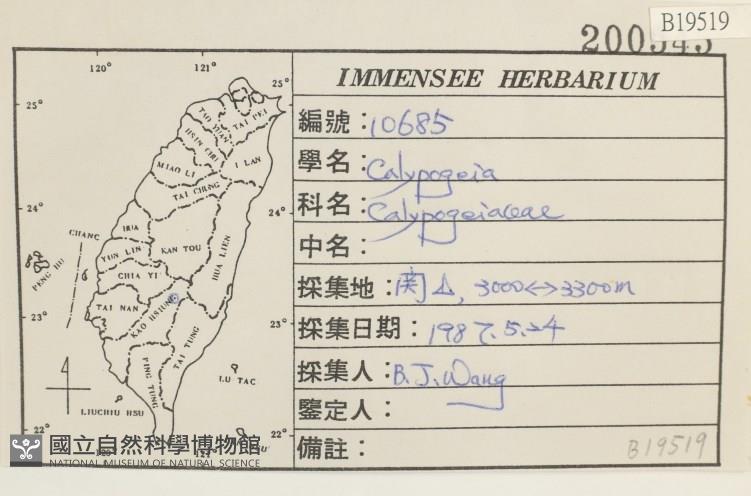 B19519
IMMENSEE HERBARIUM
編號：10685
學名：Calypogeia
科名：Calypogeiaceae
中名：
採集地：関山, 3000<->3300m
採集日期：1987.5.24
採集人：B.J.Wang
鑒定人：
備註：
B19519
120°
121°
25°
25°
TAO YUAN
TAI PEI
HSIN CHU
I LAN
MIAO LI
TAI CHUNG
24°
24°
CHANG
HUA
YUN LIN
KAN TOU
HUA LIEN
PENG HU
CHIA YI
TAI NAN
KAO HSIUNG
23°
23°
TAI TUNG
PING TUNG
LU TAC
LIUCHIU HSU
22°
22°
國立自然科學博物館
NATIONAL MUSEUM OF NATURAL SCIENCE